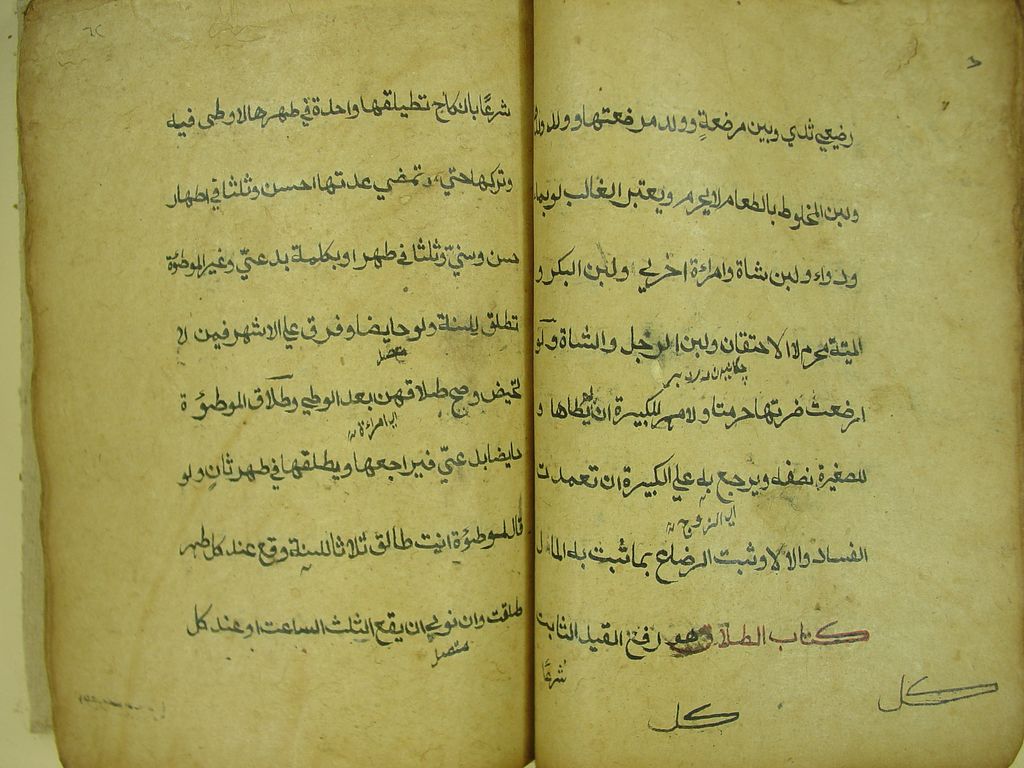 رضيعي ثدي وبين مرضعة وولد مرضعتها وولد ولد
ولبن المخلوط بالطعام لا يحرم ويعتبر الغالب لو بماء
ودواء ولبن شاة وامراءة اخري ولبن البكر و
الميتة محرم لا الاحتقان ولبن الرجل والشاة ولو
ارضعت ضرتها حرمتا ولا مهر للكبيرة ان لم يطاها و
للصغيرة نصفه ويرجع به علي الكبيرة ان تعمدت
اي الزوج
الفساد والا لا وثبت الرضاع بما ثبت به المال
كتاب الطلاق وهو رفع القيد الثابت
شرعًا
كل
كل
شرعًا بالنكاح تطليقها واحدة في طهر هالا وطى فيه
وتركها حتي تمضي عدتها احسن وثلثا في اطهار
حسن وسنيّ وثلثا في طهر او بكلمة بدعيّ وغير الموطؤة
تطلق للسنة ولو حايضا وفرق علي الاشهر فيمن لا
متصل
تحيض وصح طلاقهن بعد الوطي وطلاق الموطؤة
اي امراءة
حايضا بدعيّ فيراجعها ويطلقها في طهر ثانٍ ولو
قال لموطؤة انت طالق ثلاثا للسنة وقع عند كل طهر
طلقت وان نوي ان يقع الثلث الساعت او عند كل
متصل